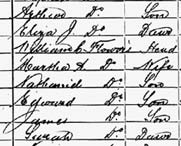 Arthur Do Son
Eliza J Do Daur
William C. Flowers Head
Martha A Do Wife
Nathaniel Do Son
Edward Do Son
James Do Son
Sarah Do Daur